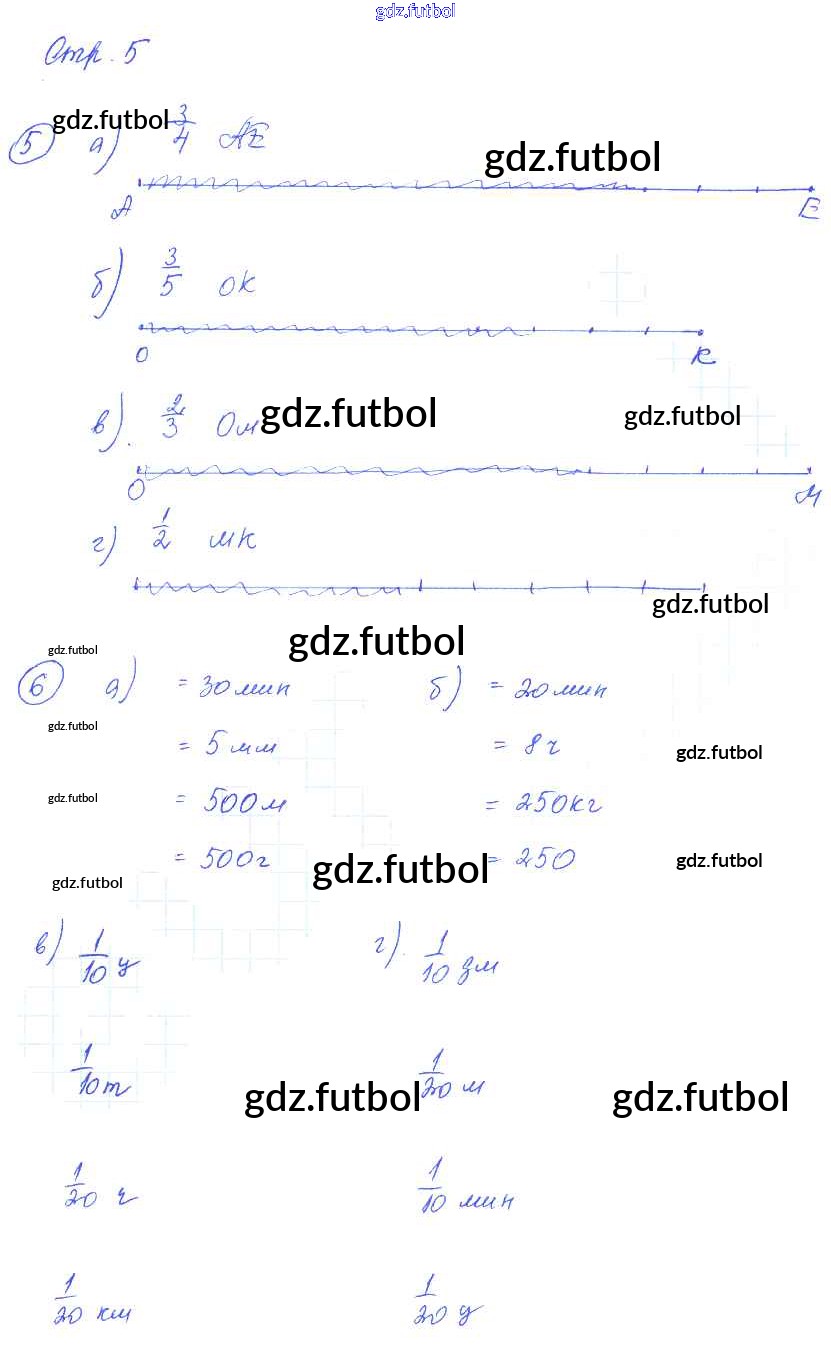 gdz.futbol
Стр. 5
gdz.futbol
5 а) 3/4 AE
gdz.futbol
A E
б) 3/5 OK
O K
в). 2/3 Ом gdz.futbol gdz.futbol
O M
г) 1/2 МК
gdz.futbol
gdz.futbol
gdz.futbol
6 а) = 30 мин б) = 20 мин
gdz.futbol
= 5 мм = 8 г
gdz.futbol
gdz.futbol
= 500 м = 250 кг
= 500 г gdz.futbol = 250 gdz.futbol
gdz.futbol
в) 1/10 ц г). 1/10 дм
1/10 т 1/20 м
gdz.futbol gdz.futbol
1/20 г 1/10 мин
1/20 км 1/20 ц